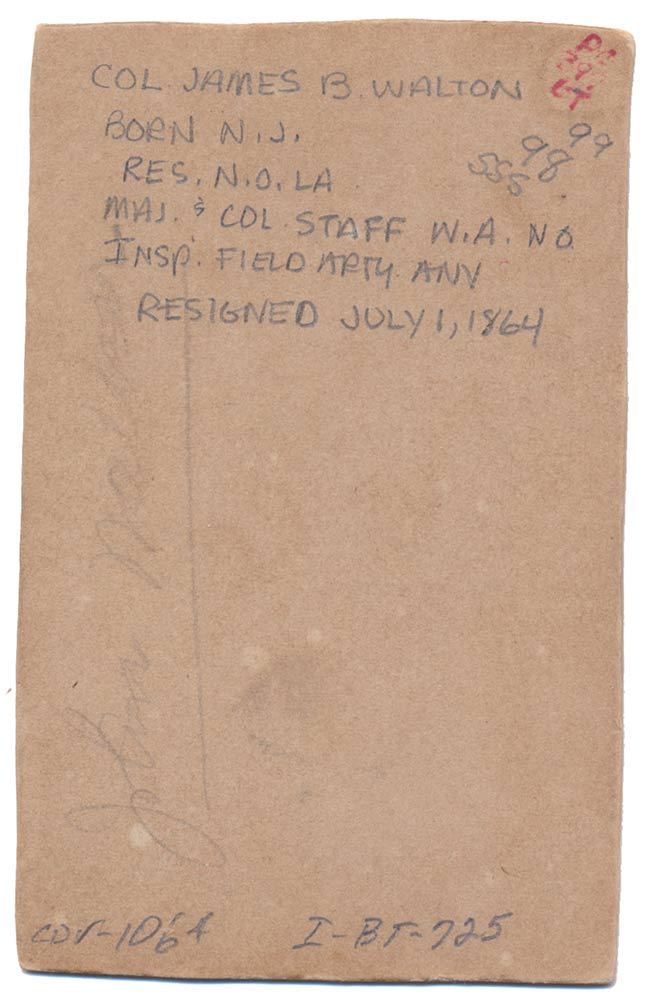 COL. JAMES B. WALTON
BORN N.J.
RES. N.O. LA
MAJ. & COL. STAFF W.A. NO
INSP. FIELD ARTY. ANV
RESIGNED JULY 1, 1864
SSS 98 99
John
CDV-1064
I-BT-725